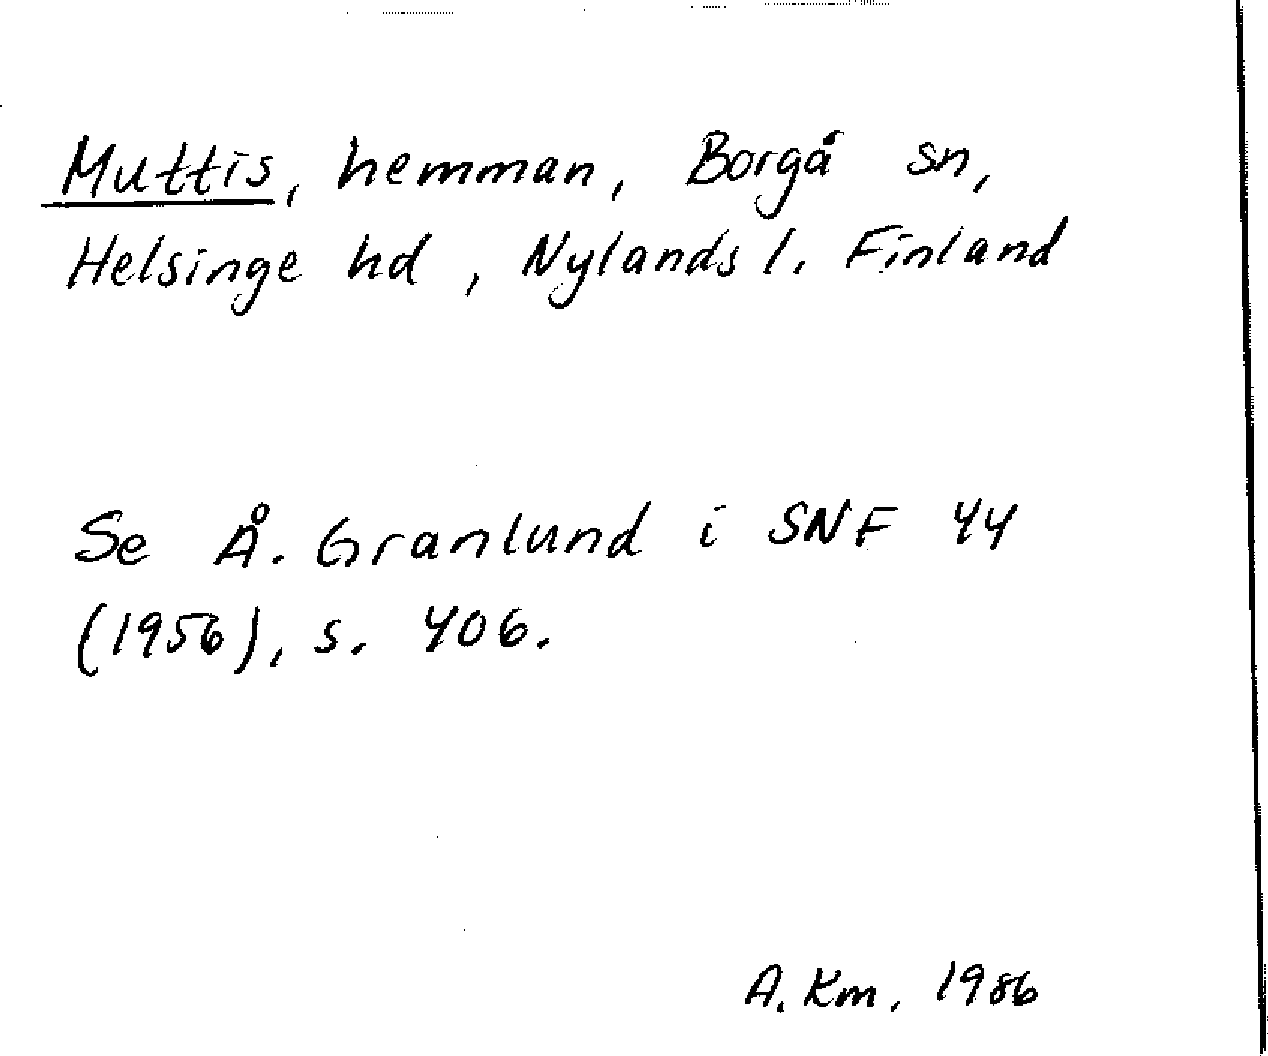 Muttis, hemman, Borgå sn,
Helsinge hd, Nylands l. Finland
Se Å. Granlund i SNF 44
(1956), s. 406.
A. Km. 1986